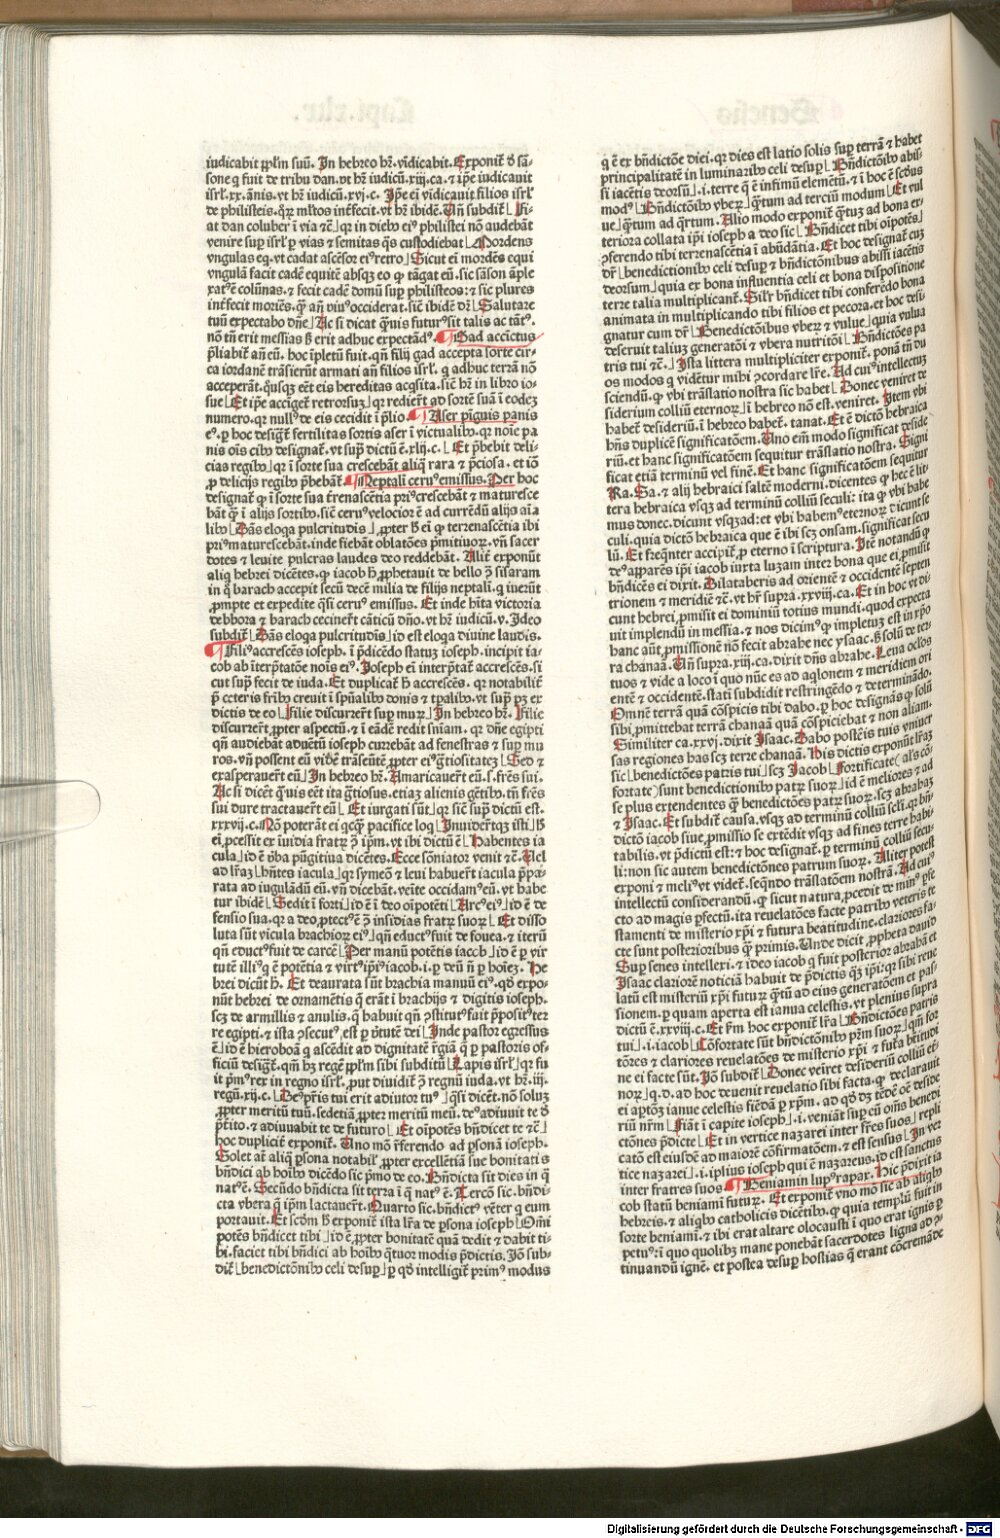 iudicabit ꝓpl̄m suū. In hebreo hr̄. vīdicabit. Exponit̄ ð sā-
sone q fuit de tribu dan. vt hr̄ iudicū. xiij. ca. ⁊ ip̄e iudicauit
isrl̄. xx. ānis. vt hr̄ iudicū. xvj. c. Ip̄e ei vīdicauit filios isrl̄
de philisteis. q̄ꝛ ml̄tos int̄fecit. vt hr̄ ibidē. Un̄ subdit̄ Fi-
at dan coluber ī via ⁊c̄ qꝛ in dieb⁹ ei⁹ philistei nō audebāt
venire sup isrl̄ ꝑ vias ⁊ semitas q̄s custodiebat Mordens
vngulas eq. vt cadat ascēsor ei⁹ retro Sicut ei mordēs equi
vngulā facit cadē equitē absqꝫ eo ꝙ tāgat eū. sic sāson āple
xat⁹ ē colūnas. ⁊ fecit cadē domū sup philisteos: ⁊ sic plures
int̄fecit moriēs. q̄ʒ an̄ viu⁹ occiderat. sic̄ ibidē dr̄ Salutare
tuū expectabo dn̄e Ac si dicat q̄uis futur⁹ sit talis ac tāt⁹.
nō tn̄ erit messias h̄ erit adhuc expectād⁹. Gad accīctus
p̄liabit̄ an̄ eū. hoc īpletū fuit. qn̄ filij gad accepta sorte cir-
ca iordanē trāsierūt armati an̄ filios isrl̄. q adhuc terrā nō
acceperāt. q̄usqꝫ eēt eis hereditas acq̄sita. sic̄ hr̄ in libro io-
sue Et ip̄e accīget̄ retrorsuꝫ qꝛ redier̄t ad sortē suā ī eodeꝫ
numero. qꝛ null⁹ de eis cecidit ī p̄lio. Aser pīguis panis
e⁹. ꝑ hoc desigt̄ fertilitas sortis aser ī victualib⁹. qꝛ noīe pa
nis oīs cib⁹ designat̄. vt sup̄ dictū ē. xlij. c. Et p̄bebit deli-
cias regib⁹ qꝛ ī sorte sua crescebāt aliq̄ rara ⁊ p̄ciosa. et iō
ꝓ delicijs regib⁹ p̄bebāt̄ Neptali ceru⁹ emissus. Per hoc
designat̄ ꝙ ī sorte sua t̄renascētia pri⁹ crescebāt ⁊ maturesce
bāt q̄ ī alijs sortib⁹. sic̄ ceru⁹ velocior ē ad currēdū alijs aīa
lib⁹ Dās eloqa pulcritudīs ꝓpter h̄ ei ꝙ terrenascētia ibi
pri⁹ maturescebāt. inde fiebāt oblatōes p̄mitiuoꝝ. vn̄ sacer
dotes ⁊ leuite pulcras laudes deo reddebāt. Alit̄ exponūt
aliq̄ hebrei dicētes. ꝙ iacob h̄ ꝓphetauit de bello ꝯ̄ sisaram
in q̄ barach accepit secū decē milia de filijs neptali. q iuerūt
ꝓmpte et expedite q̄si ceru⁹ emissus. Et inde hīta victoria
debbora ⁊ barach cecinerūt cāticū dn̄o. vt hr̄ iudicū. v. Ideo
subdit̄ Dās eloqa pulcritudīs id est eloqa diuine laudis.
Fili⁹ accrescēs ioseph. ī p̄dicēdo statuꝫ ioseph. incipit ia-
cob ab īterp̄tatōe noīs ei⁹. Joseph ei interp̄tat̄ accrescēs. si
cut sup̄ fecit de iuda. Et duplicat̄ h̄ accrescēs. qꝛ notabilit̄
p̄ ceteris frīb⁹ creuit ī spūalib⁹ donis ⁊ tꝑalib⁹. vt sup̄ pꝫ ex
dictis de eo Filie discurrer̄t sup murꝝ In hebreo hr̄. Filie
discurrer̄t ꝓpter aspectū. ⁊ ī eādē redit sn̄iam. qꝛ dn̄e egipti
qn̄ audiebāt aduētū ioseph currebāt ad fenestras ⁊ sup mu
ros. vn̄ possent eū vidē trāseūtē ꝓpter ei⁹ ḡtiositateꝫ Sed ⁊
exasperauer̄t eū In hebreo hr̄. Amaricauer̄t eū. s. fr̄es sui.
Ac si dicēt q̄uis eēt ita ḡtiosus. etiaꝫ alienis gētib⁹. tn̄ fr̄es
sui dure tractauer̄t eū Et iurgati sūt qꝛ sic̄ sup̄ dictū est.
xxxvij. c. Nō poterāt ei qcq̄ʒ pacifice loq Inuider̄tqꝫ isti h̄
ei ꝓcessit ex iuidia fratꝝ ꝯ̄ ip̄m. vt ibi dictū ē Habentes ia
cula id ē v̄ba pūgitiua dicētes. Ecce sōniator venit ⁊c̄. Uel
ad lr̄aꝫ hn̄tes iacula qꝛ symeō ⁊ leui habuer̄t iacula p̄pa-
rata ad iugulādū eū. vn̄ dicebāt. veīte occidam⁹ eū. vt habe
tur ibidē Sedit ī forti id ē ī deo oīpotēti Arc⁹ ei⁹ id ē de
fensio sua. qꝛ a deo ꝓtect⁹ ē ꝯ̄ insidias fratꝝ suoꝝ Et disso
luta sūt vīcula brachioꝝ ei⁹ qn̄ educt⁹ fuit de fouea. ⁊ iterū
qn̄ educt⁹ fuit de carcē Per manū potētis iacob id ē ꝑ vir
tutē illi⁹ q̄ ē potētia ⁊ virt⁹ ip̄i⁹ iacob. i. ꝑ deū n̄ ꝑ hoīeꝫ. He
brei dicūt h̄. Et deaurata sūt brachia manuū ei⁹. qð expo-
nūt hebrei de ornamētis q̄ erāt ī brachijs ⁊ digitis ioseph.
scꝫ de armillis ⁊ anulis. q̄ habuit qn̄ ꝯstitut⁹ fuit p̄posit⁹ ter
re egipti. ⁊ ista ꝯsecut⁹ est ꝑ v̄tutē dei Inde pastor egressus
ē id ē hieroboā q ascēdit ad dignitatē r̄giā q̄ ꝑ pastoris of-
ficiū desigt̄. qm̄ hꝫ regē ꝓpl̄m sibi subditū Lapis isrl̄ qꝛ fu
it p̄m⁹ rex in regno isrl̄. put diuidit̄ ꝯ̄ regnū iuda. vt hr̄. iij.
regū. xij. c. De⁹ pr̄is tui erit adiutor tu⁹ q̄si dicēt. nō soluꝫ
ꝓpter meritū tuū. sed etiā ꝓpter meritū meū. de⁹ adiuuit te ð
p̄tito. ⁊ adiuuabit te de futuro Et oīpotēs bn̄dicet te ⁊c̄
hoc duplicit̄ exponit̄. Uno mō r̄ferendo ad psonā ioseph.
Solet at̄ aliq̄ psona notabil̄ ꝓpter excellētiā sue bonitatis
bn̄dici ab hoīb⁹ dicēdo sic p̄mo de eo. Bn̄dicta sit dies in q̄
nat⁹ ē. Secūdo bn̄dicta sit terra ī q̄ nat⁹ ē. Tercō sic. bn̄di-
cta vbera q̄ ip̄m lactauer̄t. Quarto sic. bn̄dict⁹ vēter q eum
portauit. Et scðm h̄ exponit̄ ista lr̄a de psona ioseph Oīni
potēs bn̄dicet tibi id ē ꝓpter bonitatē quā dedit ⁊ dabit ti-
bi. faciet tibi bn̄dici ab hoīb⁹ q̄tuor modis p̄dictis. Jō sub-
dit̄ benedictōnib⁹ celi desuꝑ ꝑ qð intelligit̄ prim⁹ modus
q ē ex bn̄dictōe diei. qꝛ dies est latio solis sup terrā ⁊ habet
principalitatē in luminarib⁹ celi desuꝑ Bn̄dictōib⁹ abis-
si iacētis deorsū. i. terre q̄ ē infimū elemētū. ⁊ ī hoc ē scðus
mod⁹ Bn̄dictōib⁹ vbeꝝ q̄tum ad terciū modum Et vul
ue q̄tum ad q̄rtum. Alio modo exponit̄ q̄tuꝫ ad bona ex-
teriora collata ip̄i ioseph a deo sic Bn̄dicet tibi oīpotēs
ꝯferendo tibi terrenascētia ī abūdātia. Et hoc designat̄ cuꝫ
dr̄ benedictionib⁹ celi desuꝑ ⁊ bn̄dictōnibus abissi iacētis
deorsum quia ex bona influentia celi et bona dispositione
terre talia multiplicant̄. Sil̄r bn̄dicet tibi conferēdo bona
animata in multiplicando tibi filios et pecora. et hoc desi
gnatur cum dr̄ Benedictōibus vbeꝝ ⁊ vulue quia vulua
deseruit taliuꝫ generatōi ⁊ vbera nutritōi Bn̄dictōes pa
tris tui ⁊c̄. Ista littera multipliciter exponit̄. ponā tn̄ du
os modos q vidētur mihi ꝯcordare lr̄e. Ad cui⁹ intellectuꝫ
sciendū. ꝙ vbi trāslatio nostra sic habet Donec veniret de
siderium colliū eternoꝝ ī hebreo nō est. veniret. Item vbi
habet̄ desideriū. ī hebreo habet̄. tanat. Et ē dictō hebraica
hn̄s duplicē significatōem. Uno em̄ modo significat deside
riū. et hanc significatōem sequitur trāslatio nostra. Signi
ficat etiā terminū vel finē. Et hanc significatōem sequitur
Ra. Sa. ⁊ alij hebraici saltē moderni. dicentes ꝙ hec ē lit
tera hebraica vsqꝫ ad terminū colliū seculi: ita ꝙ vbi habe
mus donec. dicunt vsqꝫad: et vbi habem⁹ eternoꝝ dicunt se
culi. quia dictō hebraica que ē ibi scꝫ onsam. significat secu
lū. Et freq̄nter accipit̄ ꝓ eterno ī scriptura. Itē notandū ꝙ
de⁹ apparēs ip̄i iacob iuxta luzam inter bona que ei ꝓmisit
bn̄dicēs ei dixit. Dilataberis ad orientē ⁊ occidentē septen
trionem ⁊ meridiē ⁊c̄. vt hr̄ supra. xxviij. ca. Et in hoc vt di
cunt hebrei ꝓmisit ei dominiū totius mundi. quod expecta
uit implendū in messia. ⁊ nos dicim⁹ ꝙ impletuꝫ est in xp̄o
hanc aūt ꝓmissionē nō fecit abrahe nec ysaac. h̄ solū de ter-
ra chanaā. Un̄ supra. xiij. ca. dixit dn̄s abrahe. Leua oclos
tuos ⁊ vide a loco ī quo nūc es ad aqlonem ⁊ meridiem ori
entē ⁊ occidentē. statī subdidit restringēdo ⁊ determinādo.
Omnē terrā quā cōspicis tibi dabo. ꝑ hoc designās ꝙ solū
sibi ꝓmittebat terrā chanaā quā cōspiciebat ⁊ non aliam.
Similiter ca. xxvj. dixit Isaac. Dabo post̄is tuis vniuer
sas regiones has scꝫ terre chanaā. His dictis exponūt lr̄aꝫ
sic benedictōes patris tui scꝫ Jacob Fortificate (al's cō
fortate) sunt benedictionib⁹ patꝝ suoꝝ id ē meliores ⁊ ad
se plus extendentes q̄ʒ benedictōes patꝝ suoꝝ. scꝫ abrahaꝫ
⁊ Isaac. Et subdit̄ causa. vsqꝫ ad terminū colliū seli. qꝛ bn̄
dictō iacob siue ꝓmissio se extēdit vsqꝫ ad fines terre habi-
tabilis. vt p̄dictū est: ⁊ hoc designat̄. ꝑ terminū colliū secu
li: non sic autem benedictōnes patrum suoꝝ. Aliter potest
exponi ⁊ meli⁹ vt videt̄. seqn̄do trāslatōem nostrā. Ad cui⁹
intellectū considerandū. ꝙ sicut natura ꝓcedit de min⁹ ꝑfe
cto ad magis ꝑfectū. ita reuelatōes facte patrib⁹ veteris te
stamenti de misterio xp̄i ⁊ futura beatitudine. clariores fa-
cte sunt posteriorībus q̄ʒ primis. Unde dicit ꝓpheta dauid
Sup senes intellexi. ⁊ ideo iacob q̄ fuit posterior abrahā et
Isaac clariorē noticiā habuit de p̄dictis q̄ʒ ip̄i: qꝛ sibi reue
latū est misteriū xp̄i futuꝝ q̄tū ad eius generatōem et pas-
sionem. ꝑ quam aperta est ianua celestis. vt plenius supra
dictū ē. xxviij. c. Et scðm hoc exponit̄ lr̄a Bn̄dictōes patris
tui. i. iacob Cōfortate sūt bn̄dictōnib⁹ pr̄m suoꝝ qm̄ for
tōres ⁊ clariores reuelatōes de misterio xp̄i ⁊ fut̄a btitudi
ne ei facte sūt. Jō subdit̄ Donec veīret desideriū colliū et̄-
noꝝ q. d. ad hoc deuenit reuelatio sibi facta. ꝙ declarauit
ei aꝑtōꝫ ianue celestis fiēdā ꝑ xp̄m. ad qð dꝫ tēdē oē deside
riū nr̄m Fiāt ī capite ioseph. i. veniāt sup eū om̄s benedi
ctōnes p̄dicte Et in vertice nazarei inter fr̄es suos repli
catō est eiusdē ad maiorē cōfirmatōem. ⁊ est sensus In ver
tice nazarei. i. ip̄ius ioseph qui ē nazareus. id est sanctus
inter fratres suos Beniamin lup⁹ rapax. Hic p̄dixit ia
cob statū beniami futuꝝ. Et exponit̄ vno mō sic ab aliqb⁹
hebreis. ⁊ aliqb⁹ catholicis dicētib⁹. ꝙ quia templū fuit in
sorte beniami. ⁊ ibi erat altare olocausti ī quo erat ignis ꝑ
petu⁹: ī quo quolibꝫ mane ponebāt sacerdotes ligna ad ꝯ-
tinuandū ignē. et postea desuꝑ hostias q̄ erant cōcremāde
Digitalisierung gefördert durch die Deutsche Forschungsgemeinschaft - DFG